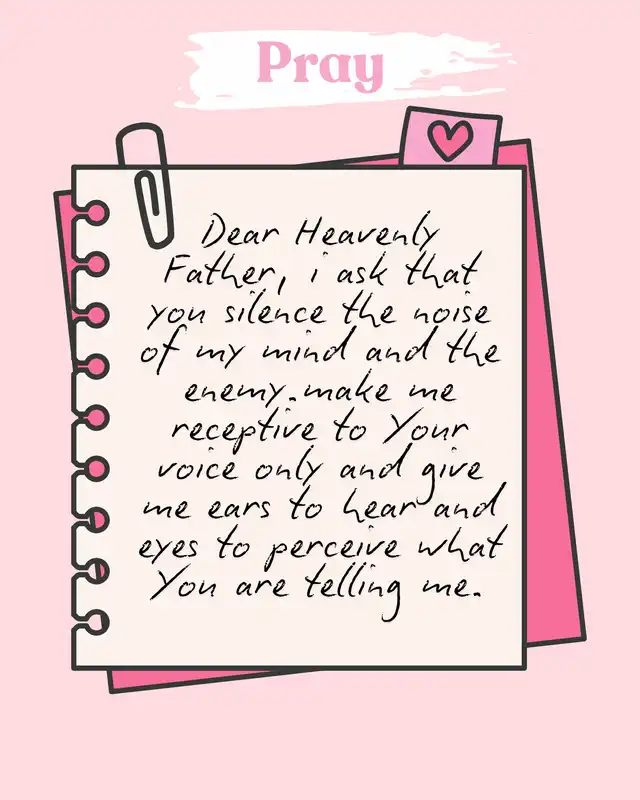 Pray
Dear Heavenly
Father, i ask that
you silence the noise
of my mind and the
enemy.make me
receptive to Your
voice only and give
me ears to hear and
eyes to perceive what
You are telling me.